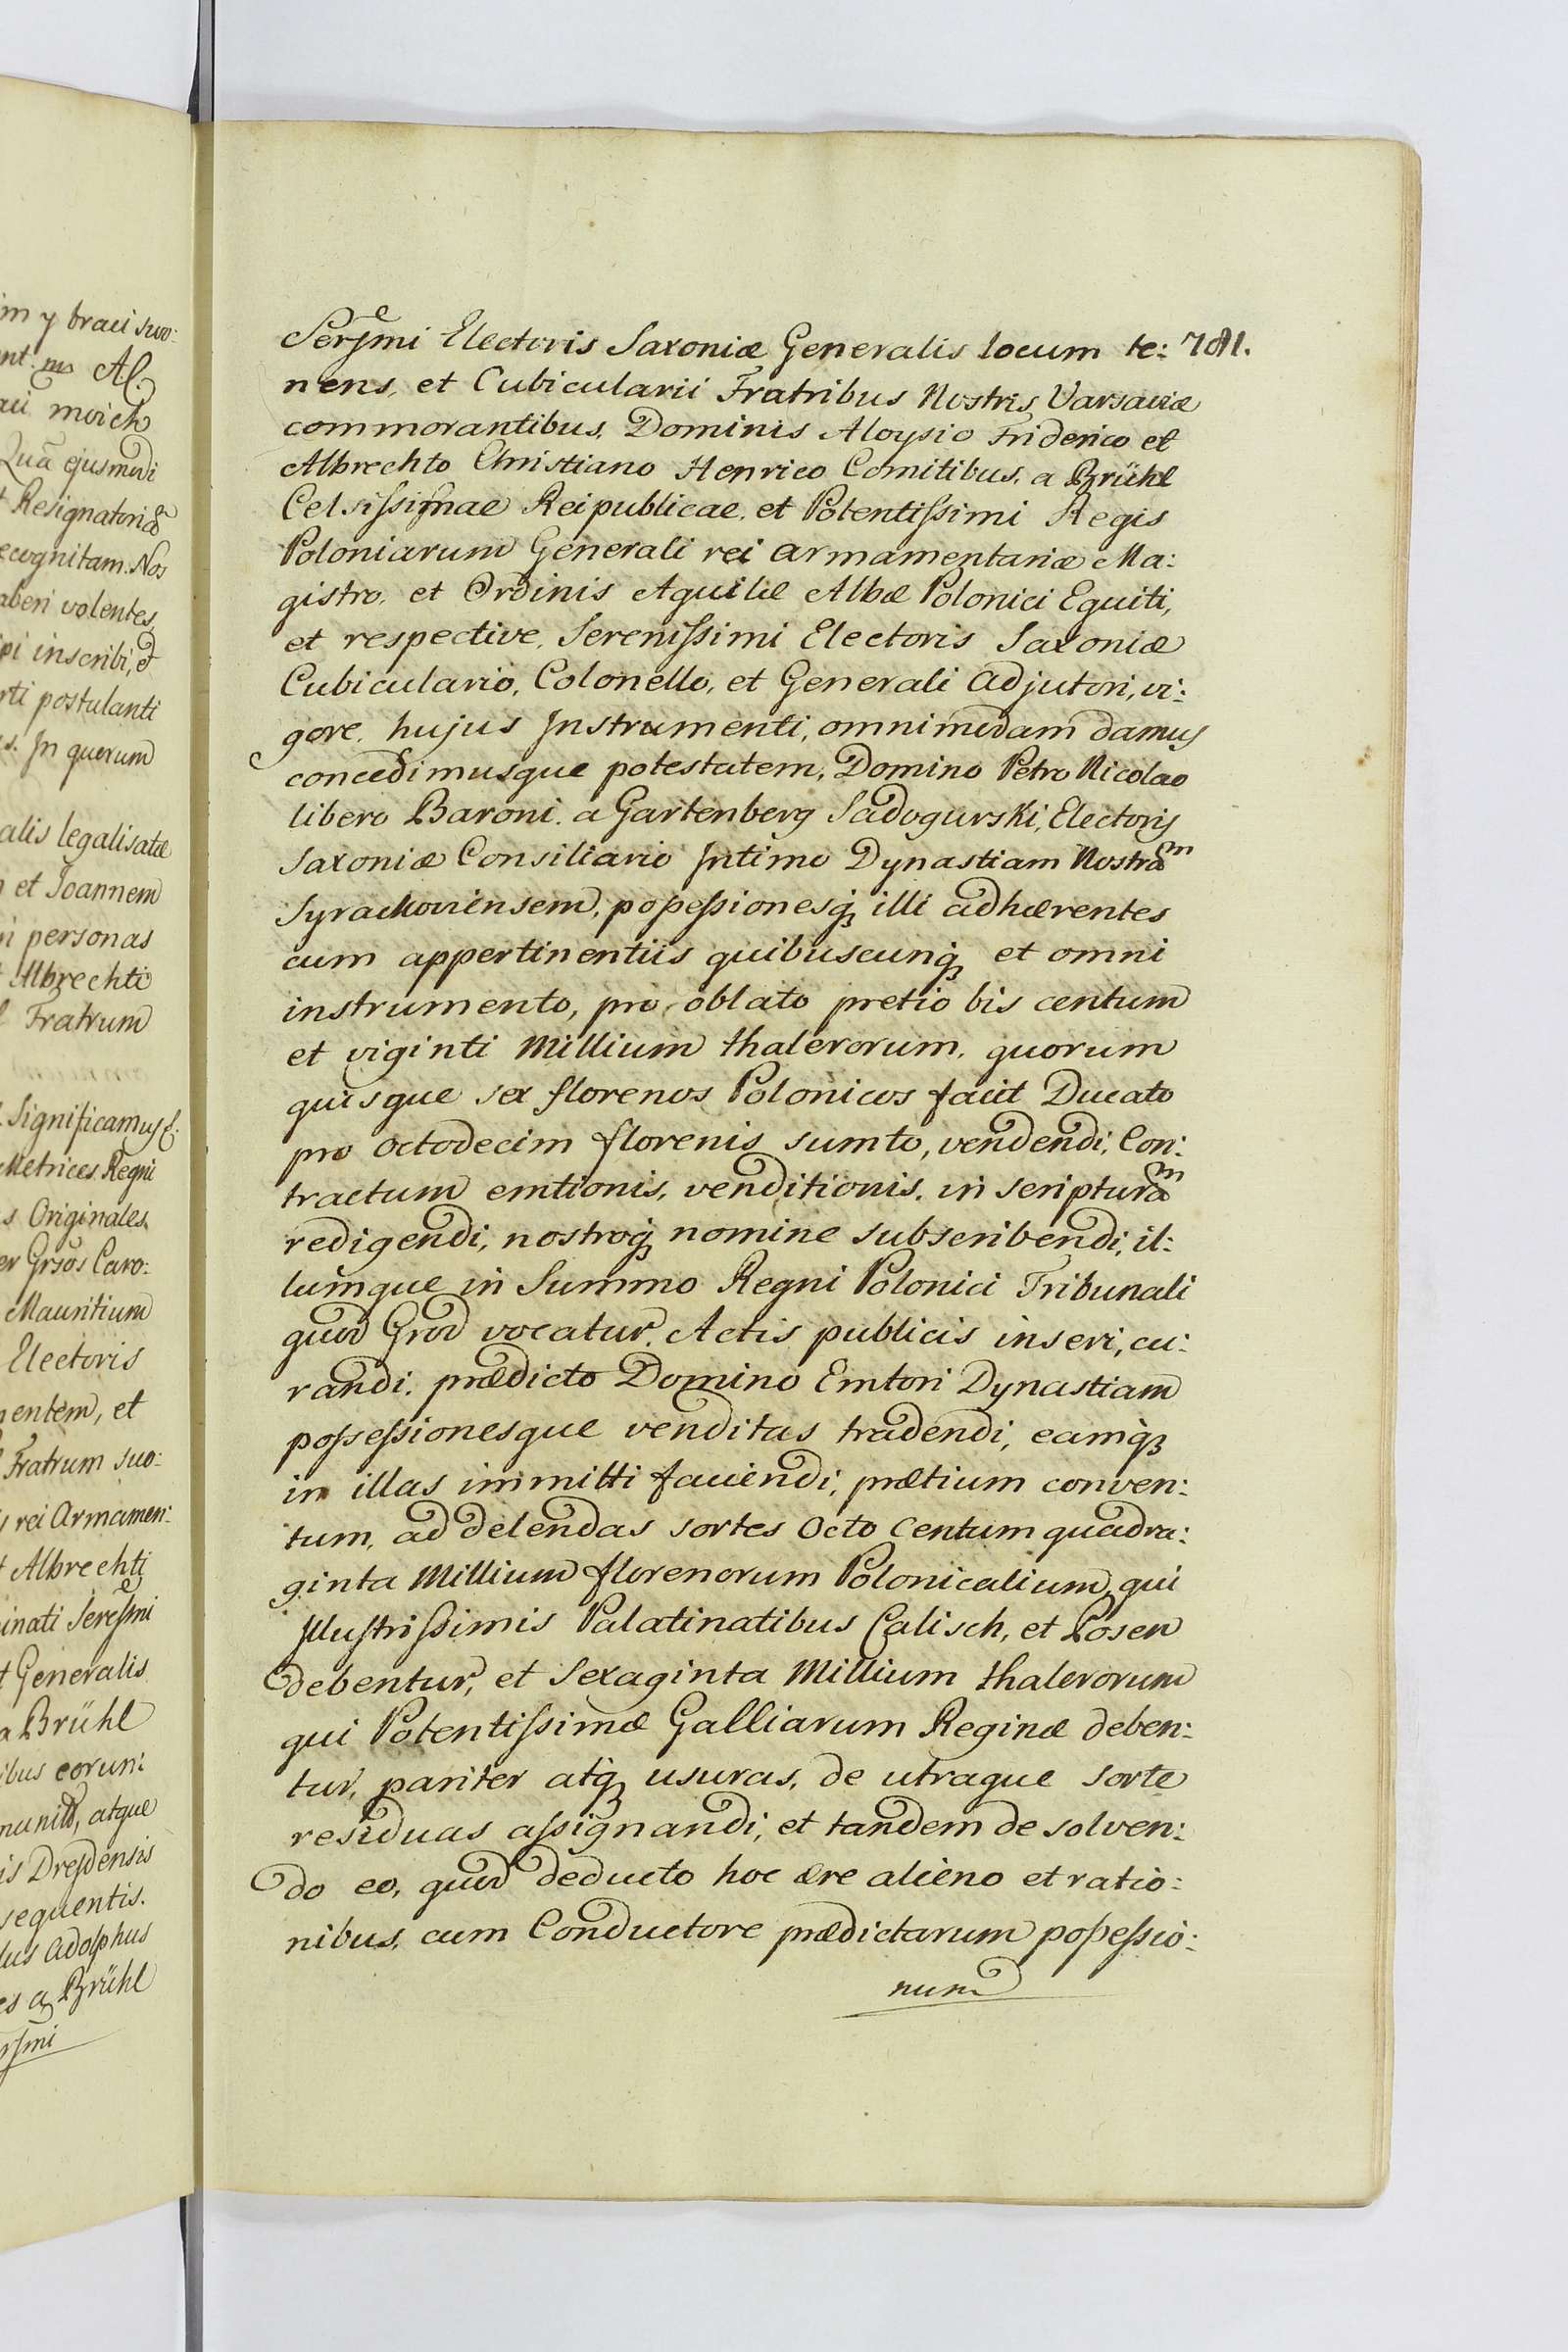 im y braci swo:
nt. ms Al.
aci moich
Quã ejusmodi
t Resignatoriæ
ecognitam. Nos
aberi volentes,
pi inscribi, et
rti postulanti
s. In quorum
alis legalisatæ
n et Joannem
ri personas
t Albrechti
l Fratrum
. Significamus &.
Metrices Regni
s Originales
er Grsos Caro:
Mauritium
Electoris
nentem, et
Fratrum suo:
s rei Armamen:
t Albrechti
inati Sereſmi
t Generalis
a Brühl
ibus eorum:
muniti, atque
is Dresdensis
sequentis.
lus Adolphus
es a Brühl
rſmi
Serſmi Electoris Saxoniæ Generalis locum te: 781.
nens, et Cubicularii Fratribus Nostris Varsaviæ
commorantibus, Dominis Aloysio Friderico et
Albrechto Christiano Henrico Comitibus, a Brühl
Celsiſsimae Reipublicae, et Potentiſsimi Regis
Poloniarum Generali rei armamentariæ Ma:
gistro, et Ordinis Aquilæ Albæ Polonici Equiti,
et respective, Sereniſsimi Electoris Saxoniæ
Cubiculario, Colonello, et Generali Adjutori, vi:
gore, hujus Instrumenti, omnimodam damus
concedimusque potestatem, Domino Petro Nicolao
libero Baroni, a Gartenberg Sadogurski, Electoris
Saxoniæ Consiliario Intimo Dynastiam Nostram
Syrackoviensem, poſseſsionesq, illi adhærentes
cum appertinentiis quibuscunq, et omni
instrumento, pro oblato pretio bis centum
et viginti Millium thalerorum, quorum
quisque sex florenos Polonicos facit Ducato
pro octodecim florenis sumto, vendendi, Con:
tractum emtionis, venditionis, in scripturam
redigendi, nostroq, nomine subscribendi, il:
lumque in Summo Regni Polonici Tribunali
quod Grod vocatur, Actis publicis inseri, cu:
randi, prædicto Domino Emtori Dynastiam
poſseſsionesque venditas tradendi, eamq,
in illas immitti faciendi, prætium conven:
tum, ad delendas sortes Octo Centum quadra:
ginta Millium florenorum Polonicalium, qui
Illustriſsimis Palatinatibus Calisch, et Posen
debentur, et Sexaginta Millium thalerorum
qui Potentiſsimæ Galliarum Reginæ deben:
tur, pariter atq, usuras, de utraque sorte
residuas aſsignandi, et tandem de solven:
do eo, quod deducto hoc ære alieno et ratio:
nibus, cum Conductore prædictarum poſseſsio:
num